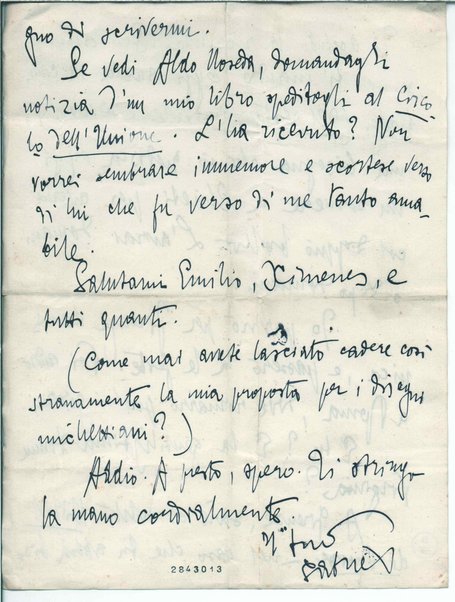 gno di scrivermi.
Se vedi Aldo Noseda, domandagli
notizia d'un mio libro speditogli al Circo
lo dell'Unione. L'ha ricevuto? Non
vorrei sembrare immemore e scortese verso
di lui che fu verso di me tanto ama-
bile.
Salutami Emilio, Ximenes, e
tutti quanti.
(Come mai avete lasciato cadere così
stranamente la mia proposta per i disegni
michettiani?)
Addio. A presto, spero. Ti stringo
la mano cordialmente
Il tuo
Gabriel
2843013